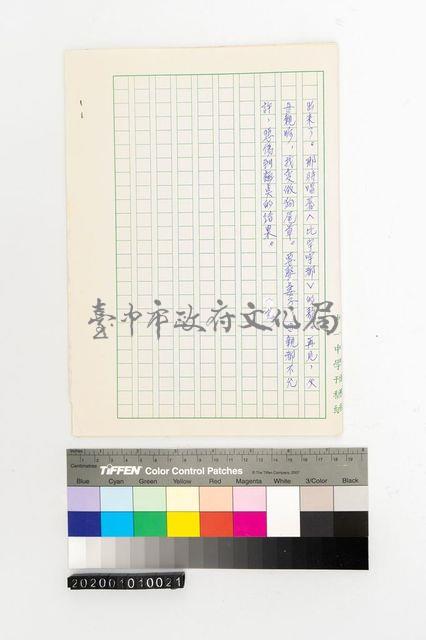 出來了。那時唱著〈比宇宇都〉的 再見，父
母親啊，我要做狗尾草。 母親都不允
許，悲傷到 的結果。
臺中市政府文化局
中學刊稿紙
Inches
Centimetres
TIFFEN Color Control Patches
© The Tiffen Company, 2007
Blue Cyan Green Yellow Red Magenta White 3/Color Black
202001010021